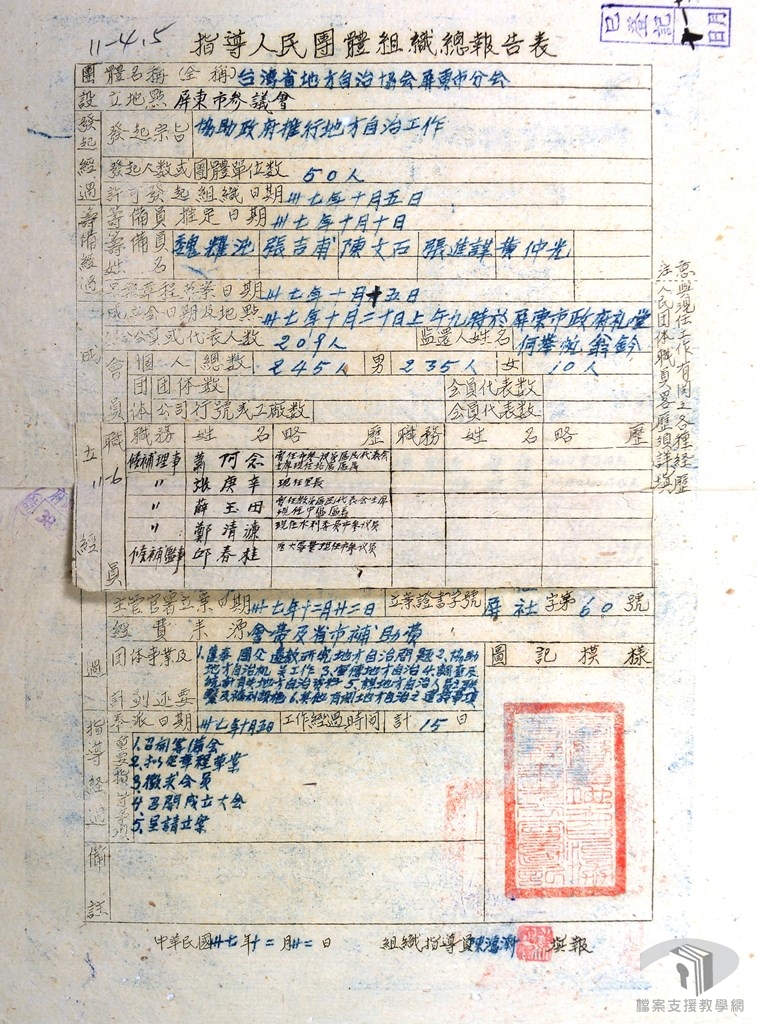 11-4.5 指導人民團體組織總報告表
已登記 月 日
團體名稱(全稱) 台灣省地方自治協会屏東市分会
設立地點 屏東市參議會
發起經過 發起宗旨 協助政府推行地方自治工作
發起人数或團體單位数 50人
許可發起組織日期 卅七年十月五日
籌備經過 籌備員推定日期 卅七年十月十日
籌備員姓名 魏耀 張吉甫 陳文石 張進 黃仲光
章程草案日期 卅七年十月十五日
成立会日期及地點 卅七年十月二十日上午九時於屏東市政府礼堂
会員或代表人数 209人 監選人姓名 何舉帆
會員 個人 總数 245人 男 235人 女 10人
団体 団体数 会員代表数
公司行號或工廠数 会員代表数
成立經過
職員 職務 姓名 略歷 職務 姓名 略歷
11-6
候補理事 蕭何念
〃 張庚辛 現任里長
〃 薛玉田
〃 鄭清源 現任水利委員市參議員
候補監事 邱春桂 現任市參議員
主管官署立案日期 卅七年十二月廿二日 立案證書字號 屏社字第60號
經費來源 會費及省市補助費
団体事業及計劃述要
圖記模樣
奉派日期 卅七年十月五日 工作經過時間 計15日
指導經過 重要指導事項
1.召開籌備会
2.擬定章程草案
3.徵求会員
4.召開成立大会
5.呈請立案
備註
中華民國卅七年十二月廿二日 組織指導員 陳鴻 填報
注人民团体職員畧歷須詳填
意與現任工作有関之各種經歷
檔案支援教學網